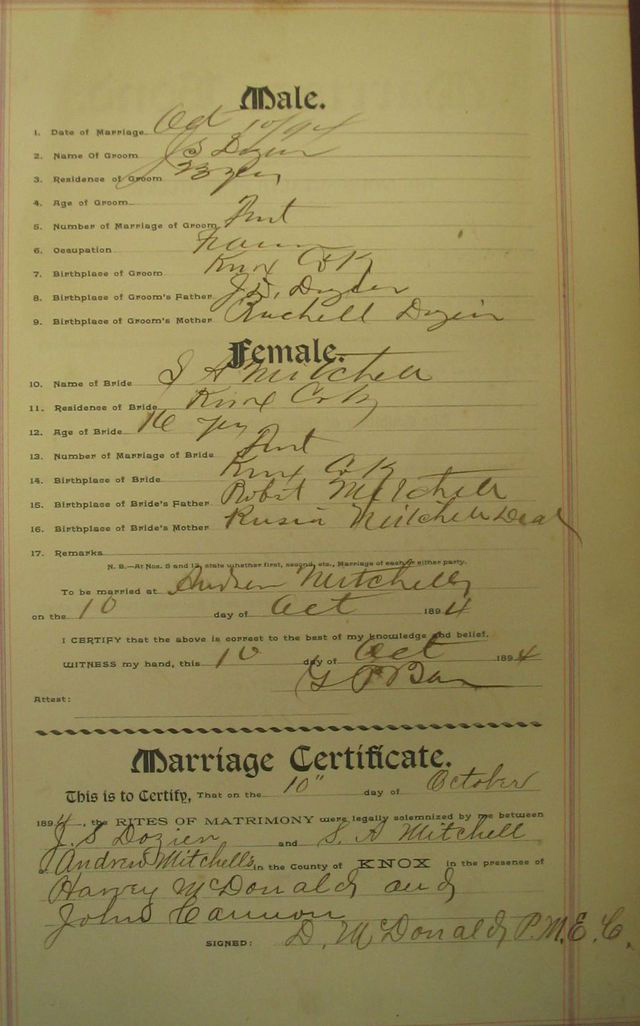 Male.
1. Date of Marriage Oct 10/94
2. Name Of Groom J S Dozier
3. Residence of Groom
4. Age of Groom 23 yrs
5. Number of Marriage of Groom First
6. Occupation Farmer
7. Birthplace of Groom Knox Co Ky
8. Birthplace of Groom's Father J. D. Dozier
9. Birthplace of Groom's Mother Rachell Dozier
Female.
10. Name of Bride S A Mitchell
11. Residence of Bride Knox Co Ky
12. Age of Bride 16 yrs
13. Number of Marriage of Bride First
14. Birthplace of Bride Knox Co K
15. Birthplace of Bride's Father Robst Mitchell
16. Birthplace of Bride's Mother Mitchell Dead
17. Remarks
N. B.—At Nos. 5 and 13, state whether first, second, etc., Marriage of each or either party.
To be married at Andrew Mitchells
on the 10 day of Oct 1894
I CERTIFY that the above is correct to the best of my knowledge and belief.
WITNESS my hand, this 10 day of Oct 1894
Attest:
Marriage Certificate.
This is to Certify, That on the 10" day of October
1894, the RITES OF MATRIMONY were legally solemnized by me between
J. S Dozier and S. A Mitchell
Andrew Mitchells in the County of KNOX in the presence of
Harvey McDonald and
John Cannon
SIGNED: D. McDonald, P. M. E. C.